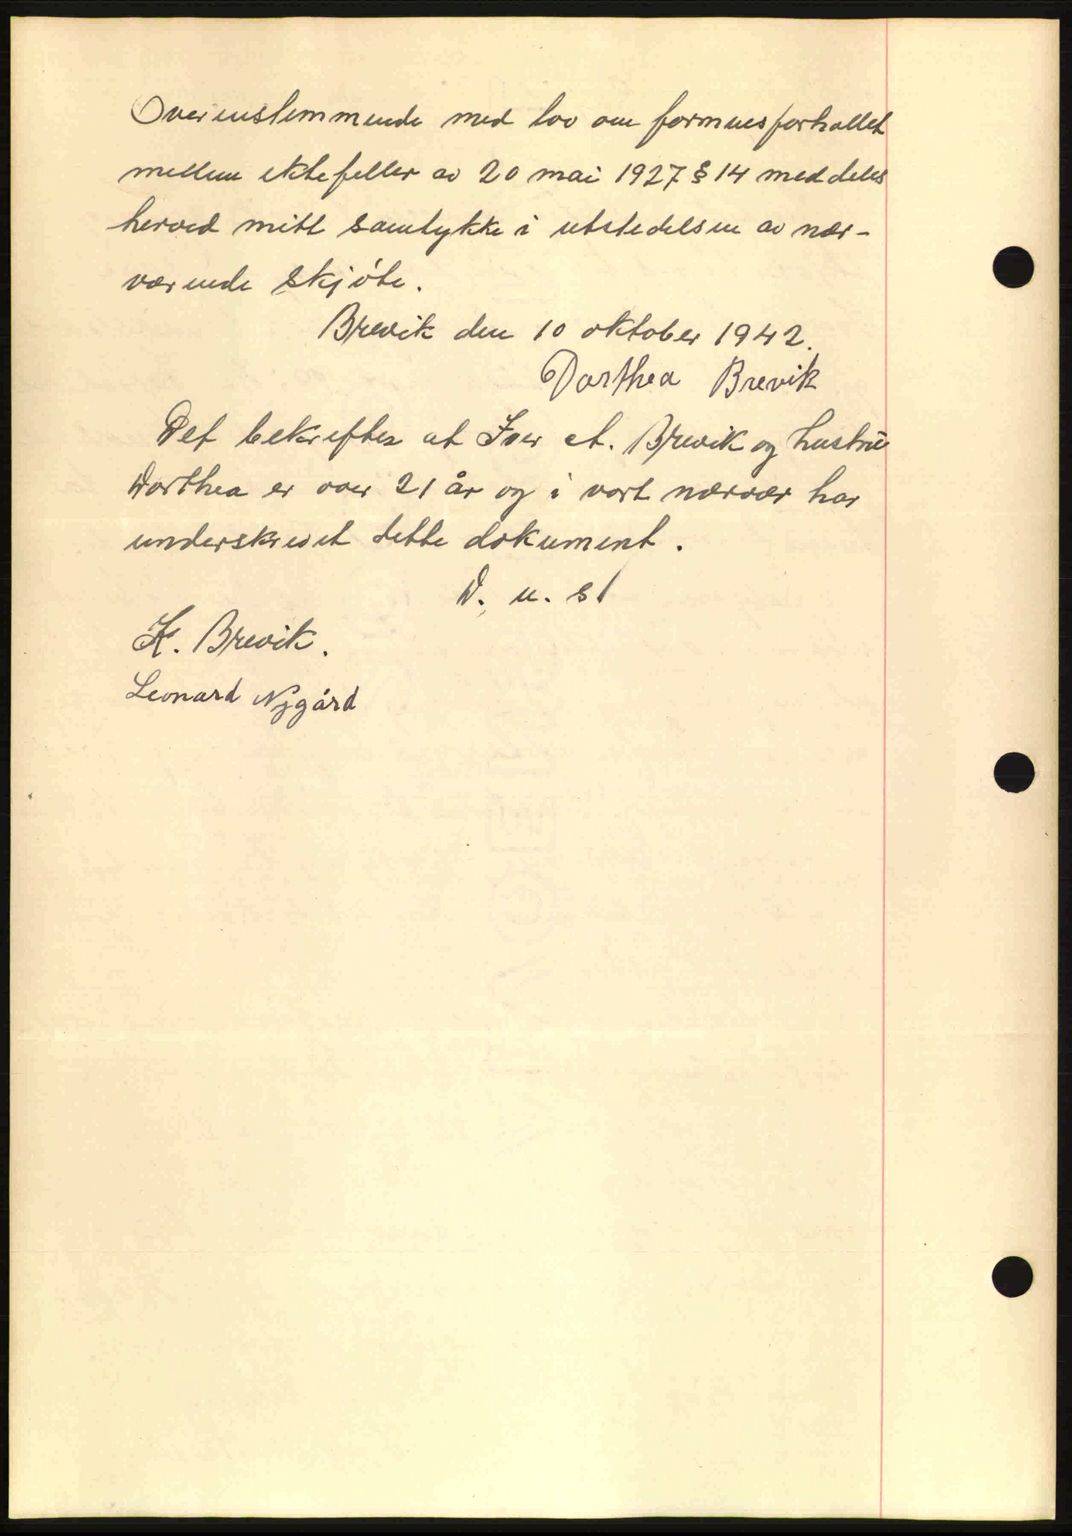 Overenstemmende med lov om formuesforhallet
mellem ektefeller av 20 mai 1927 § 14 meddeles
herved mitt samtykke i utstedelsen av nær-
værende skjøte.
Brevik den 10 oktober 1942.
Dorthea Brevik
Det bekreftes at Iver A. Brevik og hustru
Dorthea er over 21 år og i vort nærvær har
underskrevet dette dokument.
D. u. s!
K. Brevik.
Leonard Nygård